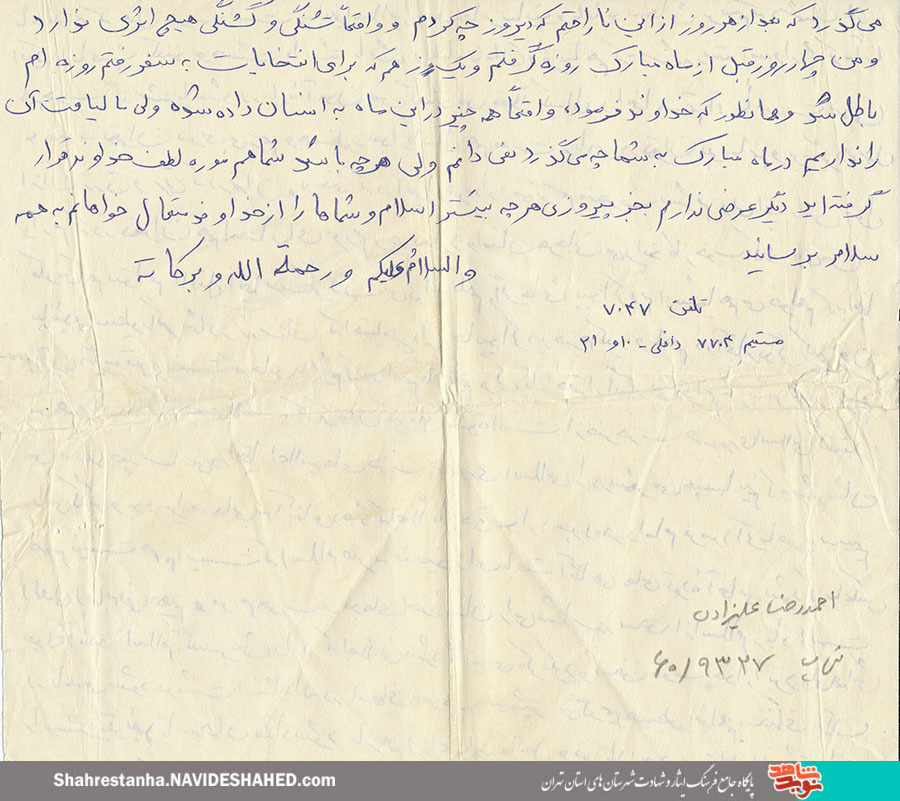 می‌گذرد که بعد از هر روز از این ناراحتم که دیروز چه کردم و واقعاً تشنگی و گشنگی هیچ اثری ندارد
و من چهار روز قبل از ماه مبارک روزه گرفتم و یک روز هم که برای انتخابات به سفر رفتم روزه ام
باطل شد و همانطور که خداوند فرموده، واقعاً همه چیز در این ماه به انسان داده شده ولی ما لیاقت آن
را نداریم در ماه مبارک به شما چه می‌گذرد نمی دانم ولی هر چه باشد شما هم مورد لطف خداوند قرار
گرفته اید دیگر عرضی ندارم بجز پیروزی هر چه بیشتر اسلام و شماها را از خداوند متعال خواهانم به همه
سلام برسانید
والسلام علیکم و رحمة الله و برکاته
تلفن ۷۰۴۷
مستقیم ۷۷۰۴ داخلی - ۱۰ و ۲۱
احمدرضا علیزاده
۶۰/۹۳۲۷
پایگاه جامع فرهنگ ایثار و شهادت شهرستان های استان تهران
نوید شاهد
Shahrestanha.NAVIDESHAHED.com